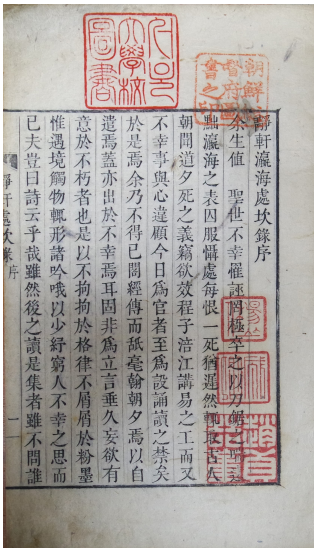 서울大學校圖書
朝鮮總督府圖書之印
靜軒瀛海處坎錄序
余生値 聖世不幸罹誣罔極卒之以刀鋸之
黜瀛海之表囚服懾處每恨一死猶遲然輒取古人
朝聞道夕死之義竊欲效程子涪江講易之工而又
不幸事與心違顧今日爲官者至爲設誦讀之禁矣
於是焉余乃不得已閣經傳而舐毫翰朝夕焉以自
遣焉蓋亦出於不得已焉耳固非爲立言垂久妄欲有
意於不朽者也是以不拘拘於格律不屑屑於粉墨
惟遇境觸物輒形諸吟哦以少紓窮人不幸之思而
已夫豈曰詩云乎哉雖然後之讀是集者雖不問誰
靜軒處坎錄 序 一